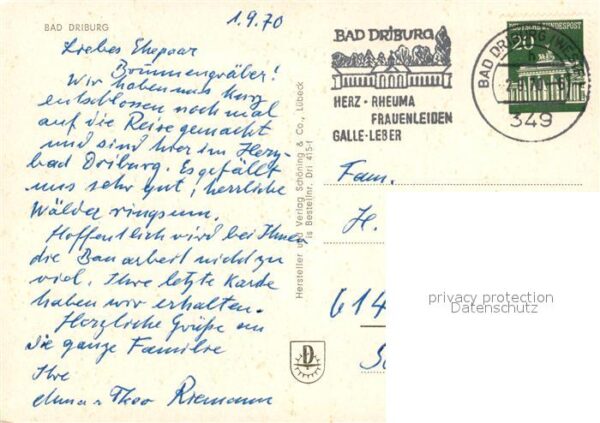 BAD DRIBURG
1.9.70
Liebes Ehepaar
Brunnengräber!
Wir haben uns kurz
entschlossen noch mal
auf die Reise gemacht
und sind hier im Herz-
bad Driburg. Es gefällt
uns sehr gut, herrliche
Wälder ringsum.
Hoffentlich wird bei Ihnen
die Bauarbeit nicht zu
viel. Ihre letzte Karte
haben wir erhalten.
Herzliche Grüße an
die ganze Familie
Ihre
Anna u Theo Riemann
Hersteller und Verlag Schöning & Co., Lübeck
Bestellnr. Dri 415-1
BAD DRIBURG
HERZ · RHEUMA
FRAUENLEIDEN
GALLE · LEBER
DEUTSCHE BUNDESPOST
20
BAD DRIBURG
349
Fam.
H.
614
privacy protection
Datenschutz